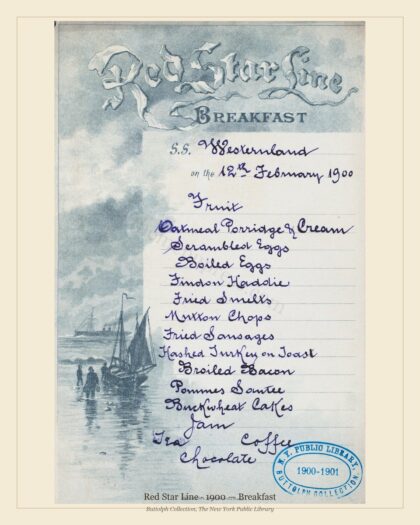 Red Star Line
BREAKFAST
S.S. Westernland
on the 12th February 1900
Fruit
Oatmeal Porridge & Cream
Scrambled Eggs
Boiled Eggs
Findon Haddie
Fried Smelts
Mutton Chops
Fried Sausages
Hashed Turkey on Toast
Broiled Bacon
Pommes Sautee
Buckwheat Cakes
Jam
Tea Coffee
Chocolate
N. Y. PUBLIC LIBRARY,
1900-1901
BUTTOLPH COLLECTION.
Red Star Line 1900 Breakfast
Buttolph Collection, The New York Public Library